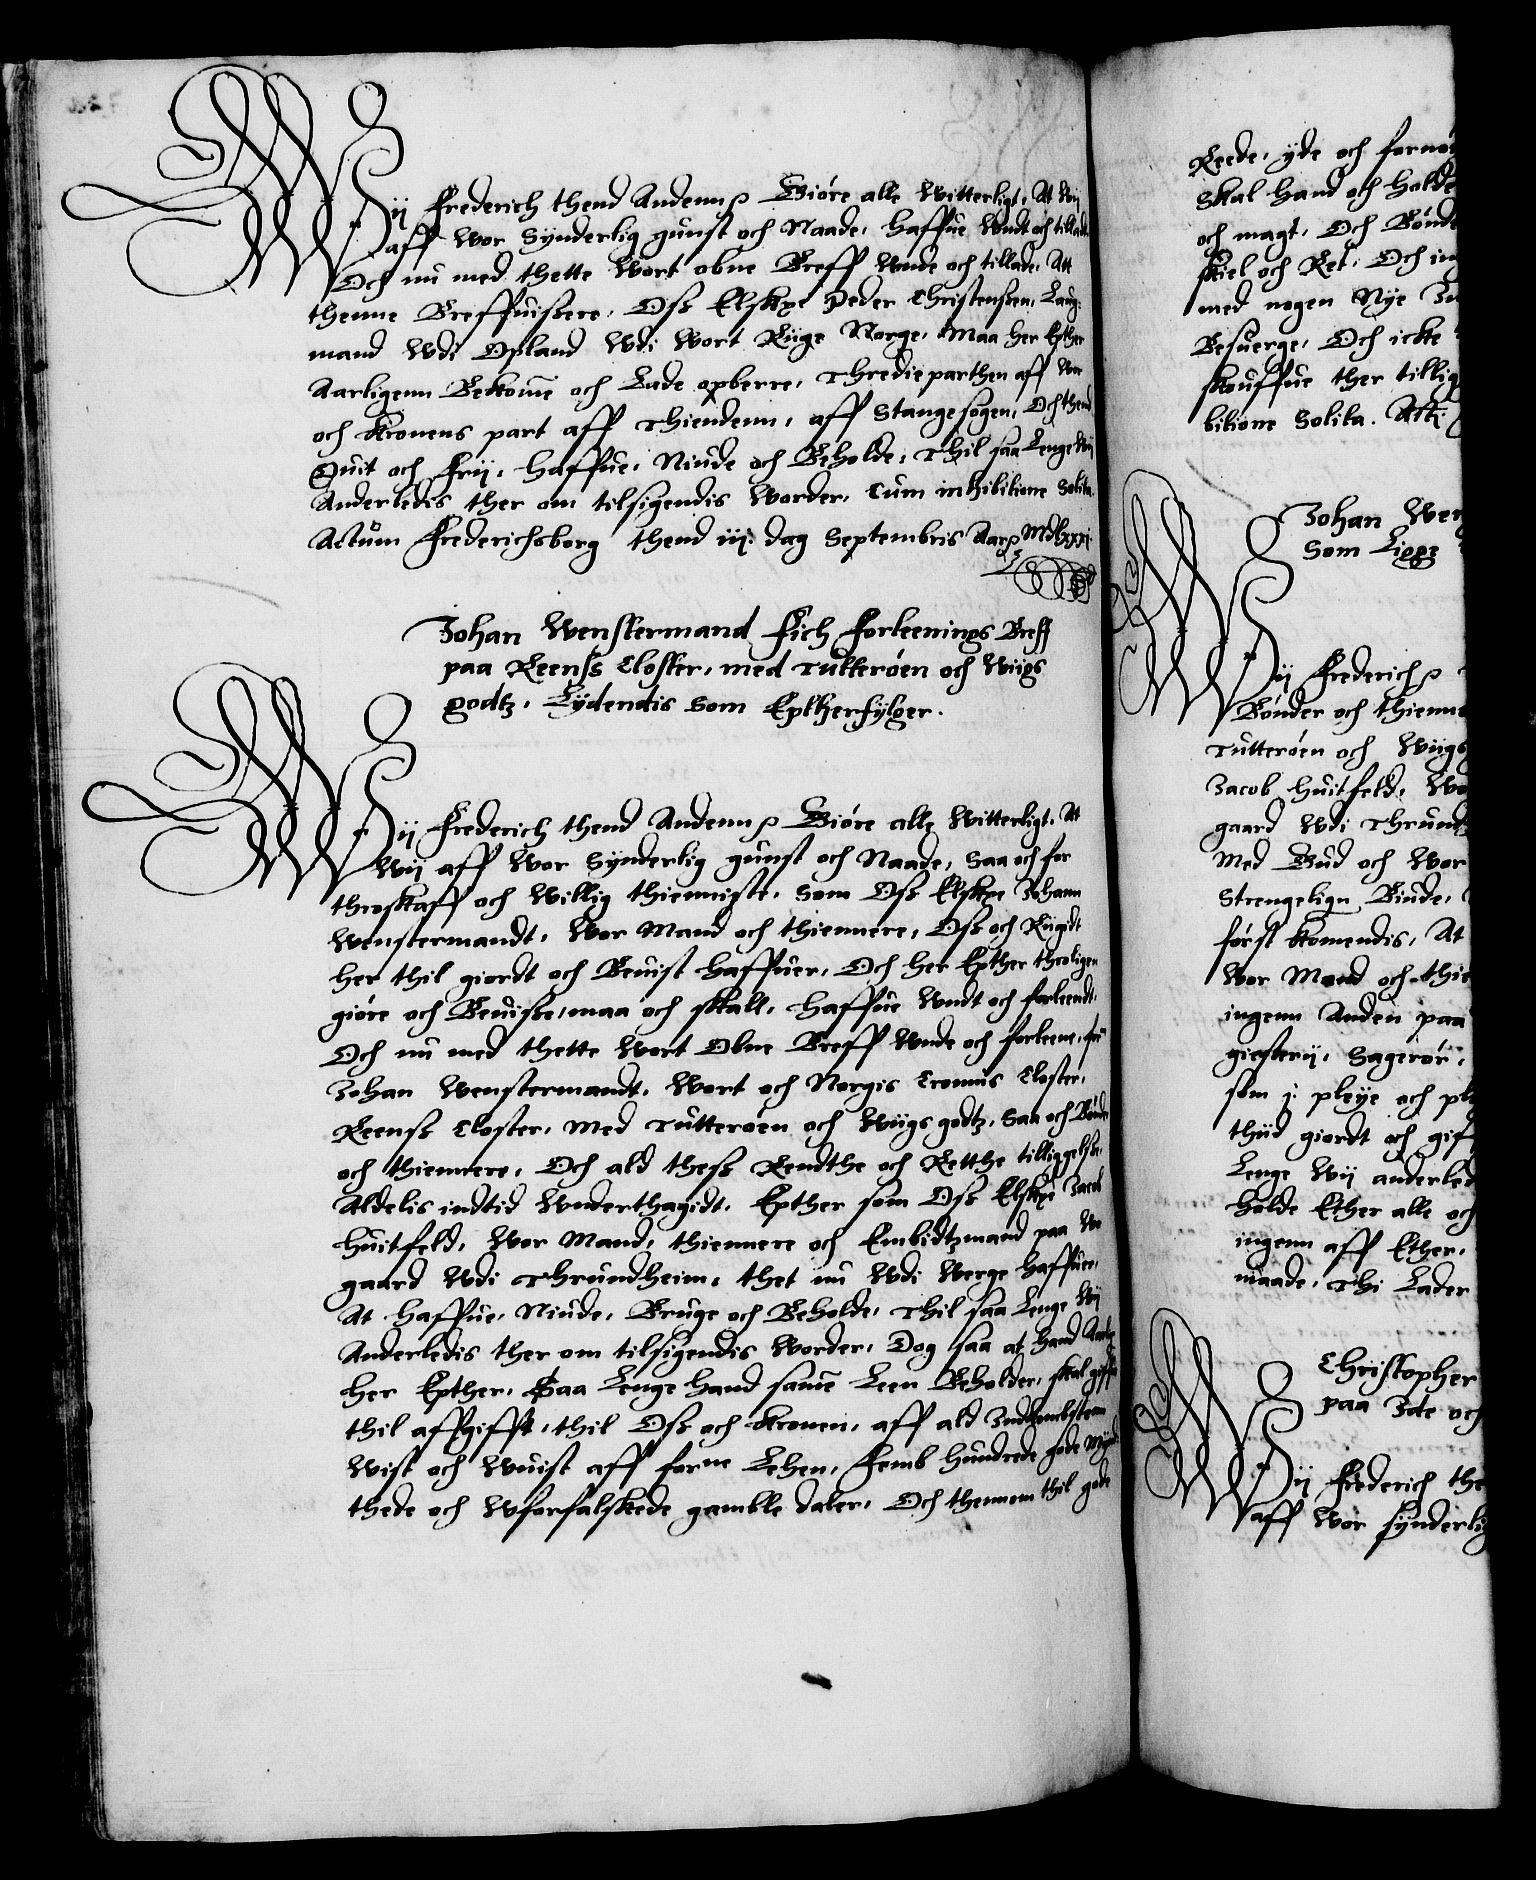 Wij Frederich thend Andenn etc Giöre alle Witterligt, At Wij
aff Wor Synderlig gunst och Naade, Haffue Undt och tilladt
Och nu med thette Wort obne Breff Unde och tillade, Att
thenne Breffuissere, Oss Elskge Peder Christenssen, Laug-
mand Udi Opland Udi Wort Rige Norge, Maa her Epther
Aarligenn Bekome och Lade opberre, Thredieparthen aff Wor
och Kronens part aff Thiendenn, aff Stange sogen, Och thend
Quit och Frij, Haffue, Niude och Beholde, Thil saa Lenge Wij
Anderledis ther om tilsigendis Worder, Cum inhibitione Solita.
Actum Frederichsborg thend iij dag Septembris Aar etc Mdlxxxj
Johan Wenstermand Fich Forleenings Breff
paa Reenss Closter, med Tutterøen och Wiigs
godtz, Lydendis som Eptherfylger.
Wij Frederich thend Andenn etc Giöre alle Witterligt, At
Wij aff Wor Synderlig gunst och Naade, Saa och for
throskaff och Willig thienniste, som Oss Elskge Johann
Wenstermandt, Wor Mand och thiennere, Oss och Rigidt
her thil giordt och Beuist Haffuer, Och her Epther throligen
giöre och Beuisse, maa och skall, Haffue Undt och forleendt,
Och nu med thette Wort Obne Breff Unde och forleene, for:ne
Johan Wenstermandt, Wort och Norgis Cronnis Closter,
Reenss Closter, Med Tutterøen och Wiigs godtz, Saa och Bönder
och thiennere, Och ald thess Rendthe och Retthe tilliggelsse,
Aldelis indtid Underthagidt, Epther som Oss Elskge Jacob
Huitfeld, Wor Mand, thiennere och Embidtzmand paa Wor
gaard Udi Thrundheim, thet nu Udi Werge Haffuer,
At Haffue, Niude, Bruge och Beholde, Thil saa Lenge Wij
Anderledis ther om tilsigendis Worder, Dog saa at Hand Aarlig
her Epther, Saa Lenge Hand same Leen Beholder, skal giffue
thil affgifft, thil Oss och Kronen, aff ald Indkombstenn
Wist och Wuist aff forne Lehen, Femb Hundrede gode Myn-
thede och Wforfalskede gamble daler, Och thennem thil gode
Reede, yde och fornø
Skal Hand och Holde
och magt, Och Bönd
skiel och Ret, Och in
med nogen Nye
Besuerge, Och icke
skouffue ther tillig
bitione Solita. Act:
Johan Wen
Som Ligge
Wij Frederich etc
Bönder och thienn
Tutterøen och Wiigs
Jacob Huitfeld, Wo
gaard Udi Thrund
Med Bud och Wor
Strengelign Biude,
först Komendis, At
Wor Mand och thie
ingenn Anden paa
giesterij, Sagerør,
som j pleye och pl
thiid giordt och gif
Lenge Wij anderled
Holde Ether alle och
ingenn aff Ether,
maade, Thi Lader
Christopher
paa Ide och
Wij Frederich the
aff Wor synderlig